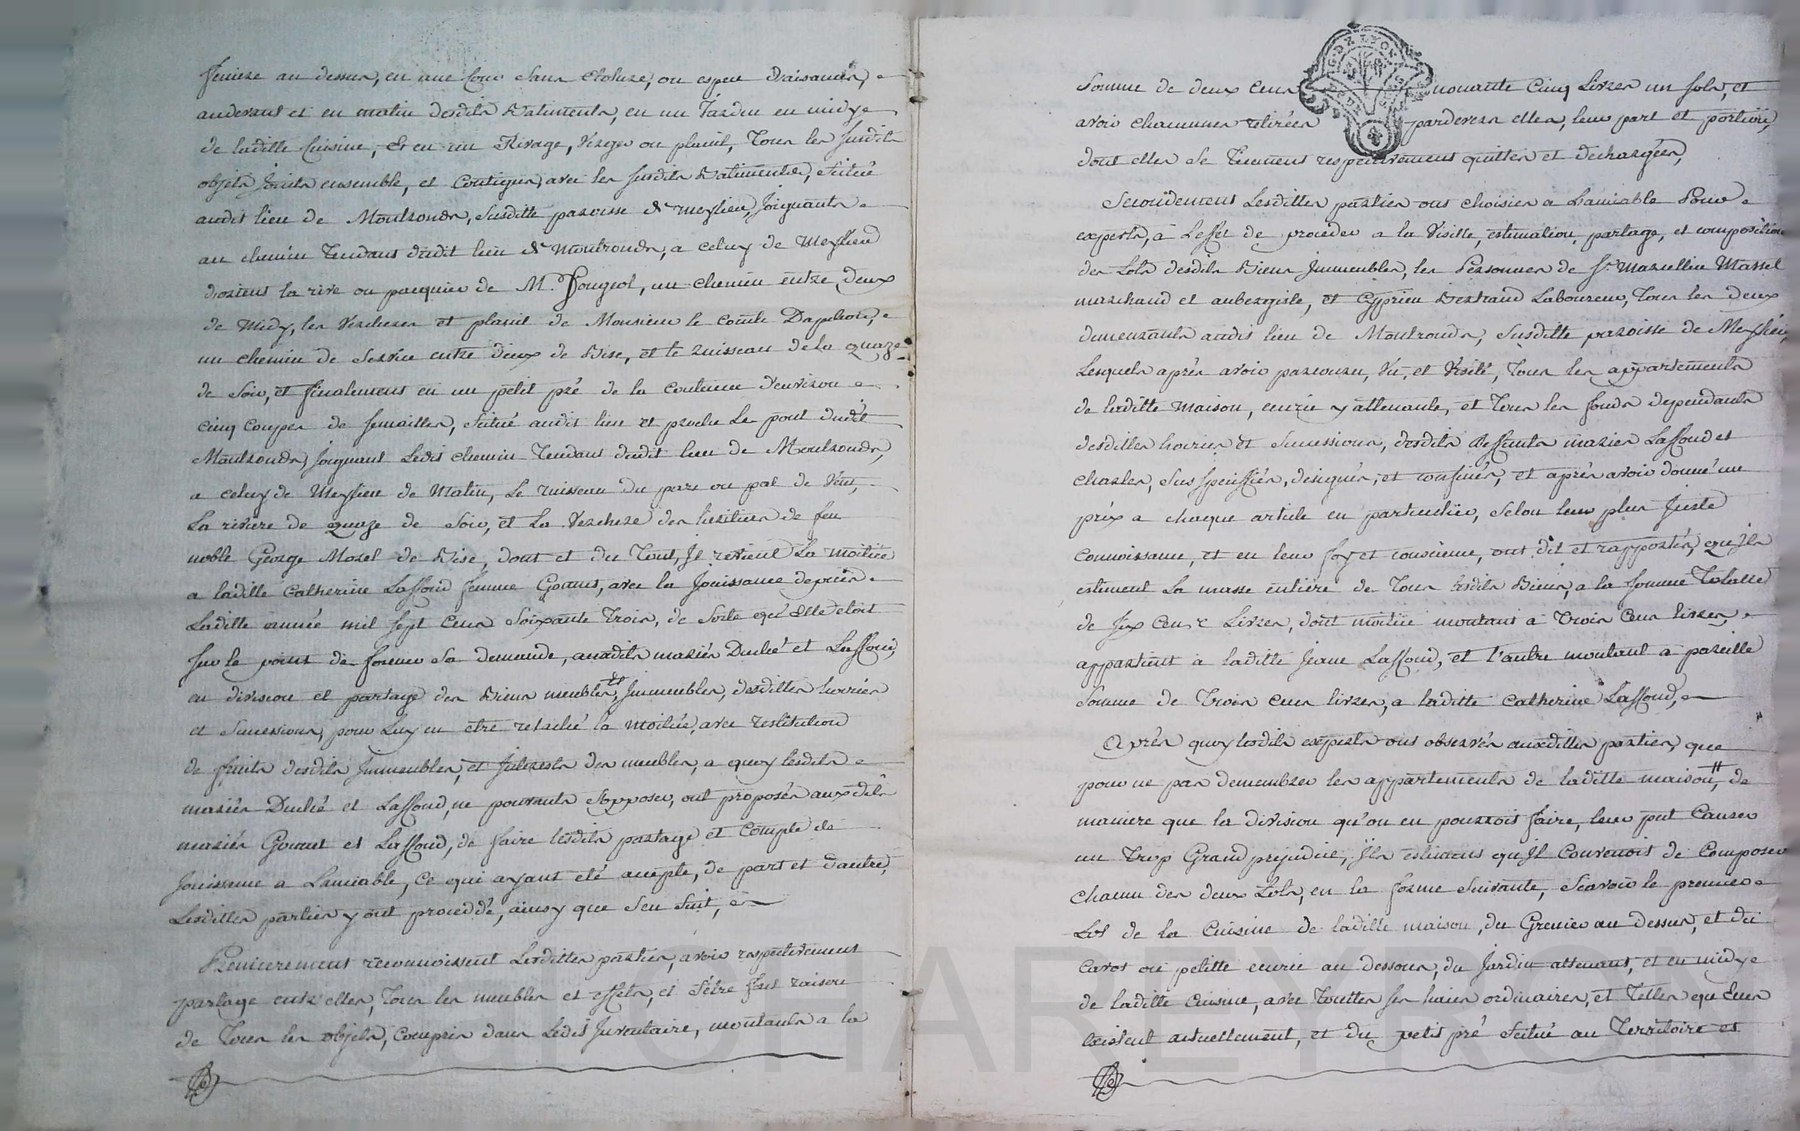 feniere au dessus, en une Cour sans Cloture, ou espece d'aisances,
audevant et en matin desdits Batiments, en un Jardin en midy
de laditte Cuisine, Et en un Rivage, Verger ou plasil, Tous les susdits
objets joints ensemble, et Contigus, avec les susdits Batiments, Scitué
audit lieu de Montronds, Susditte paroisse de Meylieu, Joignants
au chemin Tendant dudit lieu de Montronds, a celuy de Meylieu
la rive ou pasquier de M. Dougeol, un chemin entre deux
de Midy, les Vercheres et plasil de Monsieur le Comte Dapchon,
un chemin de Service entre deux de Bise, et le ruisseau de la quaze
de Soir, et finalement en un petit pré de la Contenue d'environ
cinq Coupes de semailles, Scitué audit lieu et proche Le pont dudit
Montronds, Joignant Ledit chemin Tendant dudit lieu de Montronds,
a celuy de Meylieu de Matin, Le ruisseau du parc ou pal de Vent,
La riviere de quaze de Soir, et La Verchere des heritiers de feu
noble George Morel de Bise, dont et du Tout, Il revient La Moitiée
a laditte Catherine Laffond femme Gonnet, avec la Jouissance depuis
Laditte année mil Sept Cens Soixante Trois, de Sorte qu'Elle etoit
sur le point de former Sa demande, auxdits mariés Duclié et Laffond,
en division et partage des Biens meubles, et Immeubles, desdittes hoiries
et Successions, pour Luy en etre relachée la Moitiée, avec restitution
de fruits desdits Immeubles, et Interests des meubles, a quoy lesdits
mariés Duclié et Laffond, ne pouvants S'opposer, ont proposés auxdits
mariés Gonnet et Laffond, de faire lesdits partage et Compte de
Jouissance a L'amiable, Ce qui ayant eté accepté, de part et d'autre,
Lesdittes parties y ont procédé, ainsy que S'en Suit,
Premierement reconnoissent Lesdittes parties, avoir respectivement
partagé entr'elles, Tous les meubles et effets, et S'etre fait raison
de Tous les objets, Compris dans Ledit Inventaire, montants a la
Somme de deux Cens nonante Cinq Livres un Sols, et
avoir chacunnes retirées pardevers elles, leur part et portion,
dont elles Se Tiennent respectivement quittes et dechargées,
Secondement Lesdittes parties ont choisies a L'amiable Pour
experts, à L'effet de proceder a la Visitte, estimation, partage, et composition
des Lots desdits Biens Immeubles, les Personnes de Sr Marcellin Massel
marchand et aubergiste, et Cyprien Bertrand Laboureur, Tous les deux
demeurants audit lieu de Montronds, Susditte paroisse de Meylieu,
Lesquels après avoir parcouru, Vû, et Visité, Tous les appartements
de laditte Maison, ecurie y attenante, et Tous les fonds dependants
desdittes hoiries et Successions, desdits deffunts marier Laffond et
charles, Sus Speciffiés, designés, et confinés, et après avoir donné un
prix a chaque article en particulier, Selon leur plus Juste
Connoissance, et en leur foy et conscience, ont dit et rapportés, qu'Ils
estiment La masse entiere de Tous lesdits Biens, a la Somme Totalle
de Six Cens Livres, dont moitiée montant à Trois Cens livres,
appartient à laditte Jeane Laffond, et l'autre montant a pareille
Somme de Trois Cens livres, a laditte Catherine Laffond,
Après quoy lesdits experts ont observés auxdittes parties, que
pour ne pas demembrer les appartements de laditte maison, de
maniere que la division qu'on en pourroit faire, leur put Causer
un Trop Grand prejudice, Ils estiment qu'Il Convenoit de Composer
chacun des deux Lots, en la forme Suivante, Scavoir le premier
Lot de la Cuisine de laditte maison, du Grenier au dessus, et du
Cavot ou petitte ecurie au dessous, du Jardin attenant, et en midy
de laditte Cuisine, avec Touttes ses haies ordinaires, et Telles qu'Elles
Existent actuellement, et du petit pré Scitué au Territoire et